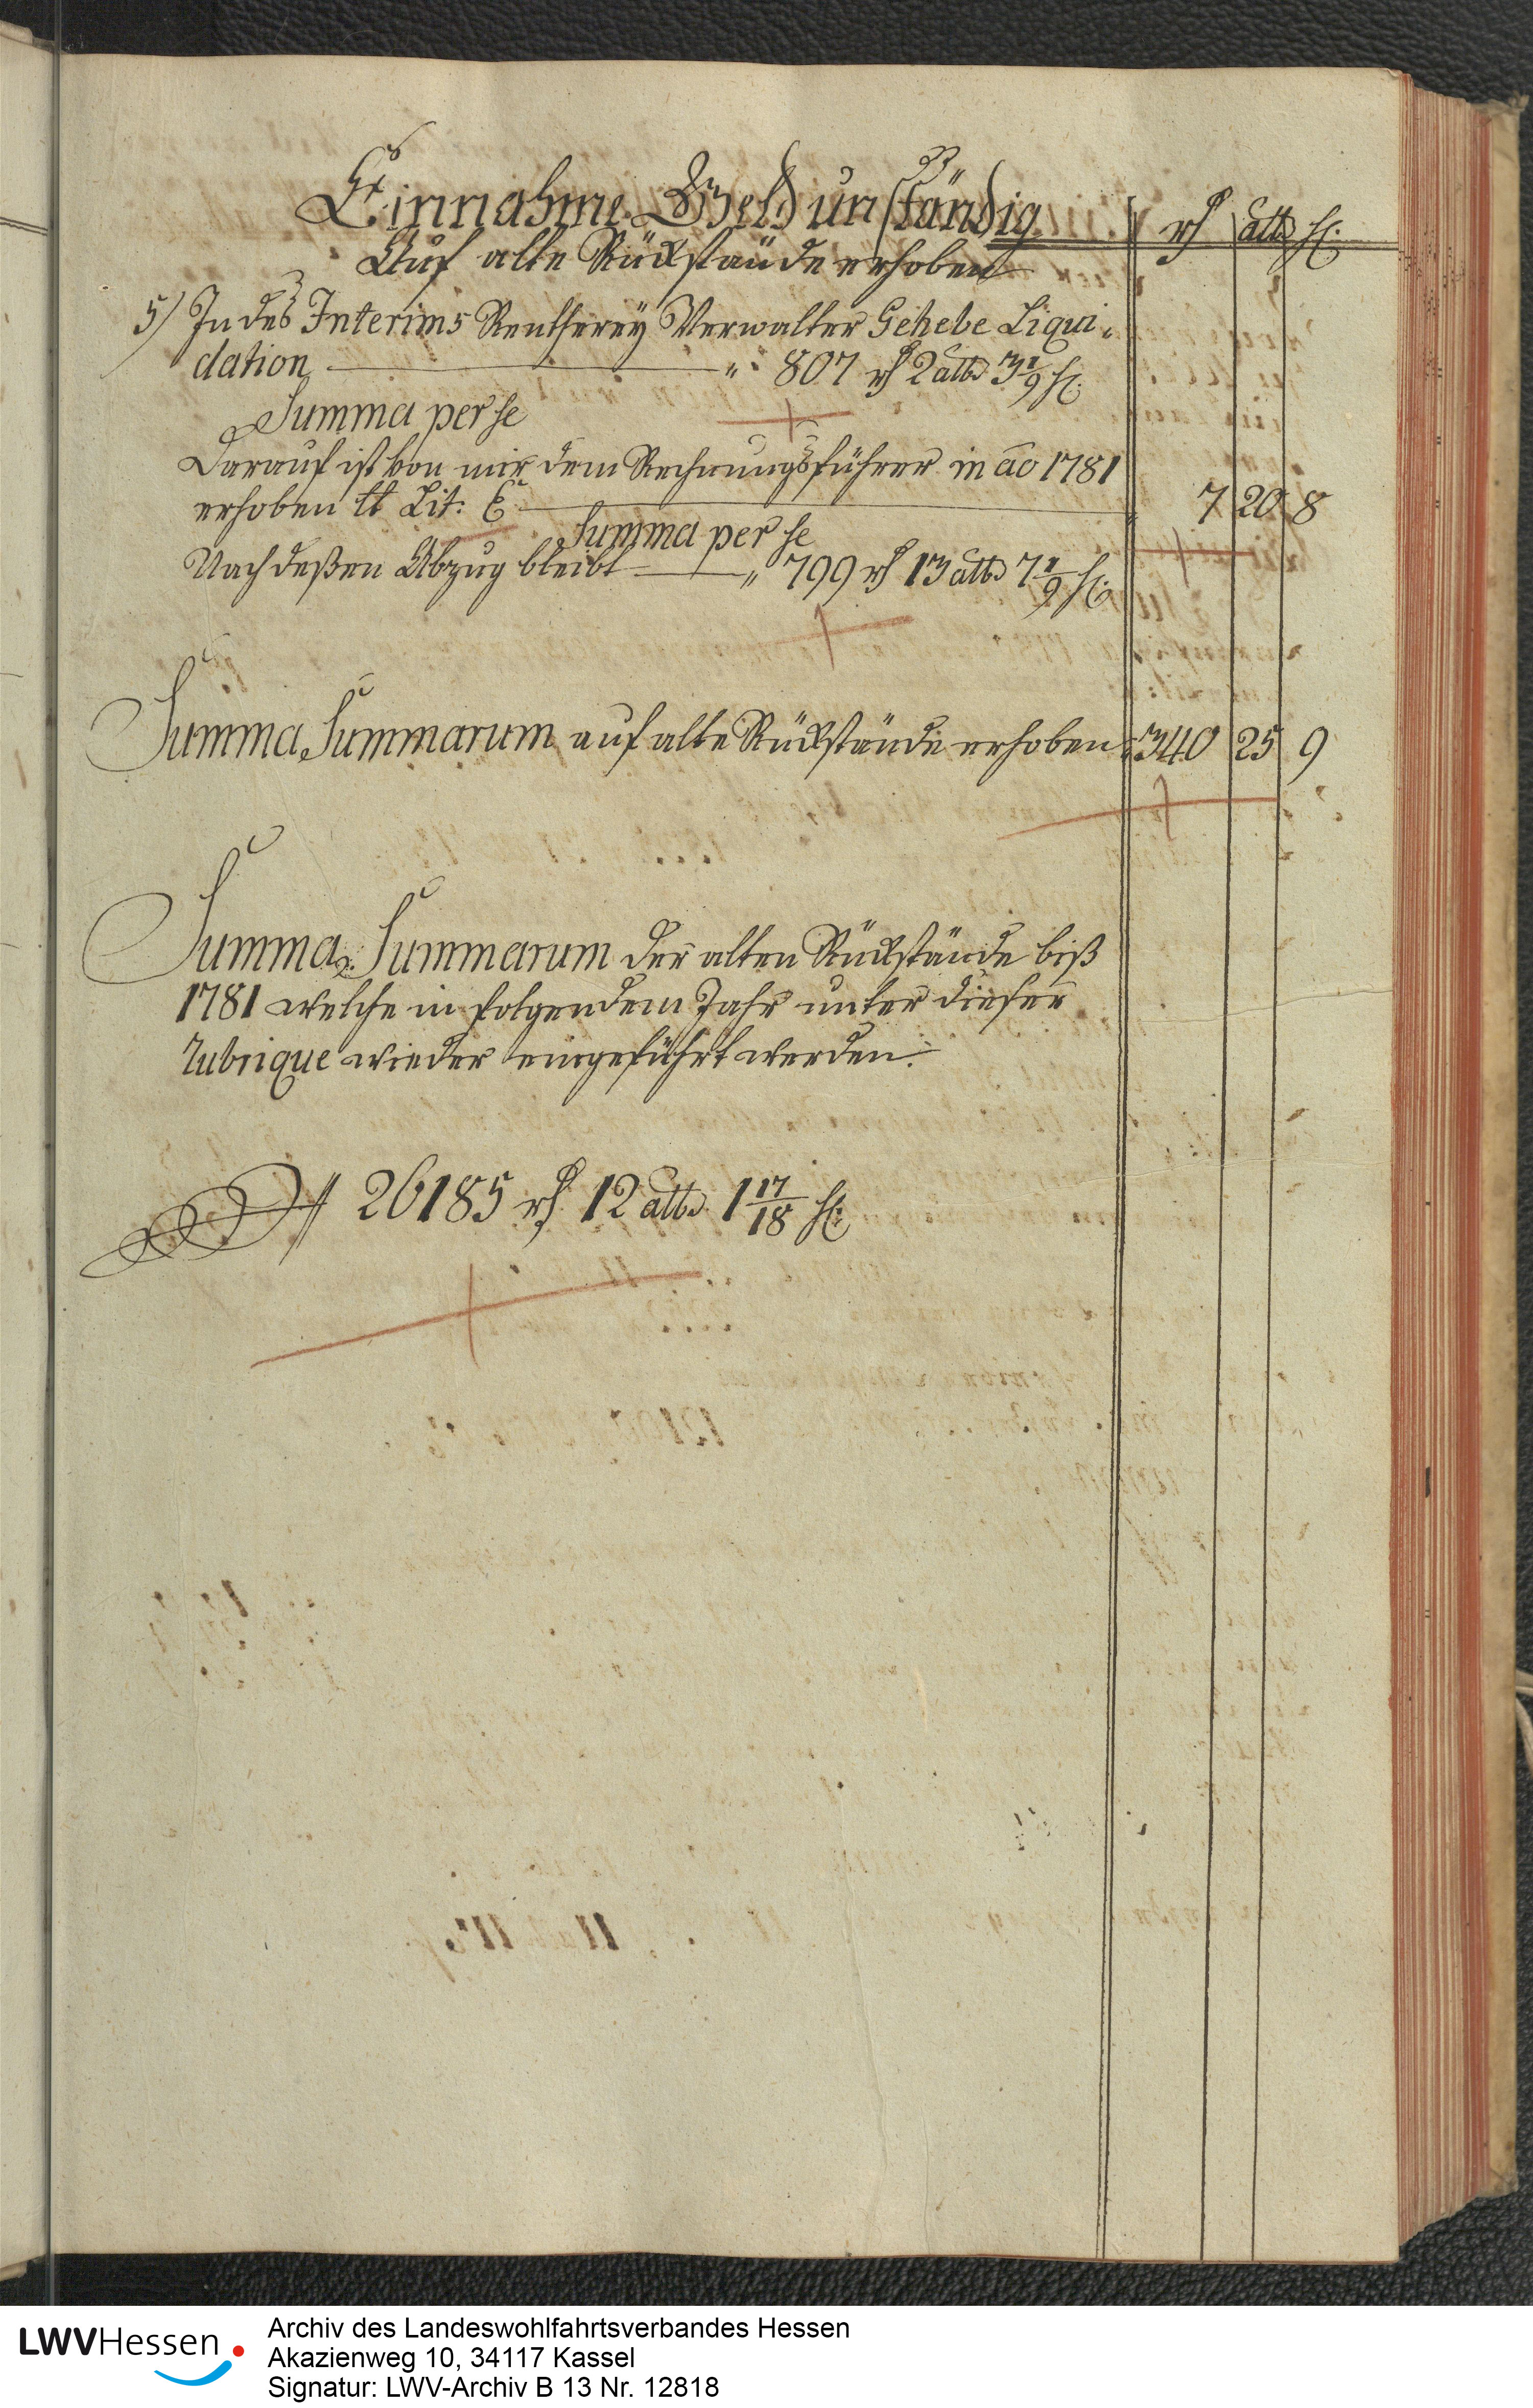 33
Einnahme Geld unständig
rh albs hl:
Auf alte Rückstände erhoben
5) In des Interims Rentherey Verwalter Gehebe Liqui-
dation " 807 rh 2 albs 3 1/9 hl:
Summa per se
Darauf ist von mir dem Rechnungsführer in ao 1781
erhoben lt Lit: E 7 20 8
Summa per se
Nach deßen Abzug bleibt " 799 rh 13 albs 7 1/9 hl:
Summa Summarum auf alte Rückstände erhoben 340 25 9
Summa Summarum der alten Rückstände biß
1781 welche in folgendem Jahr unter dieser
Rubrique wieder eingeführt werden.
26185 rh 12 albs 1 17/18 hl:
LWVHessen
Archiv des Landeswohlfahrtsverbandes Hessen
Akazienweg 10, 34117 Kassel
Signatur: LWV-Archiv B 13 Nr. 12818